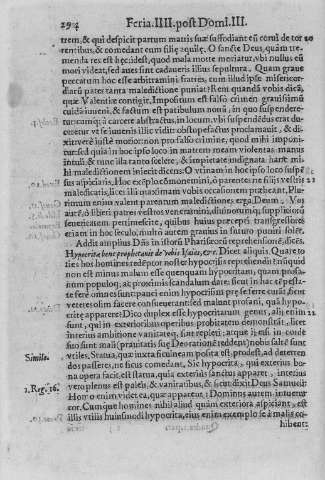 294 Feria. IIII. post Domi. III.
trem, & qui despicit partum matris suæ suffodiant eũ corui de tor 20
rentibus, & comedant eum filij aquilę. O sancte Deus, quàm tre
menda res est hęc! dest, quod mala morte moriatur, vbi nullus eũ
mori videat, sed aues sint cadaueris illius sepultura. Quam graue
peccatum hoc esse arbitramini fratres, cum illud ipse misericor-
diarũ pater tanta maledictione puniat? Rem quandã vobis dicã,
quæ Valentiæ contigit. Impositum est falso crimen grauissimũ
cuidã iuueni, & factum est patibulum noui, in quo suspendere-
tur: cumq; à carcere abstractus, in locum, vbi suspendẽdus erat du-
ceretur vt se iuuenis illic vidit obstupefactus proclamauit, & di-
xit: verè iustè morior: non pro falso crimine, quod mihi imponi-
tur: sed quia in hoc ipso loco in matrem meam violentas manus
intuli, & tunc illa tanto scelere, & impietate indignata hanc mi-
hi maledictionem iniecit dicens: O vtinam in hoc ipso loco suspẽ
sus aspiciaris. Hoc exẽplo cõmonemini, ô parentes: ne filijs vestris 21
maledicatis, licet illi maximam vobis occasionem præbeant. Plu-
rimum enim valent parentum maledictiones erga Deum. Vos
autẽ, ô liberi patres vestros veneramini, diuinorumq; suppliciorũ
seueritatem pertimescite, quibus huius præcepti transgressores
etiam in hoc seculo, multo autem grauius in futuro puniri solẽt.
Addit amplius Dñs in istorũ Pharisęorũ reprehensionẽ, dicẽs.
Hypocritæ bene prophetauit de vobis Isaias, &c. Dicet aliquis. Quare to
ties hos homines redẽptor noster hypocritas reprehendit: nũquid
non est minus malum esse quenquam hypocritam, quam profa-
num populoq; ac proximis scandalum dare: sicut in hac tẽpesta-
te ferè omnes sunt: pauci enim hypocrisim præ se ferre curãt, sem-
veteres olim facere consueuerant: sed malunt profani, quã hypo-
critę apparere? Dico duplex esse hypocritarum genus, alij enim 22
sunt, qui in exterioribus operibus probitatem demonstrãt, licet
interius ambitione vanitateq; sint repleti: atque hi etsi in confe
fuo sunt mali (prauitatis suę Deo rationẽ reddent) nobis saltẽ sunt
Simile. vtiles. Statua, quæ iuxta ficulneam posita est, prodest, ad deterren
dos passeres, ne ficus comedant. Sic hypocrita, qui exterius bo-
na opera facit, est statua, quia exterius sanctus apparet, interius
1. Reg. 16. vero plenus est paleis, & vanitatibus, & sicut dixit Deus Samueli:
Homo enim videt ea, quæ apparent: Dominus autem intuetur
cor. Cumque homines nihil aliud quàm exteriora aspiciant, est
illis vtilis huiusmodi hypocrita, eius enim exemplo se à malis co-
hibent: